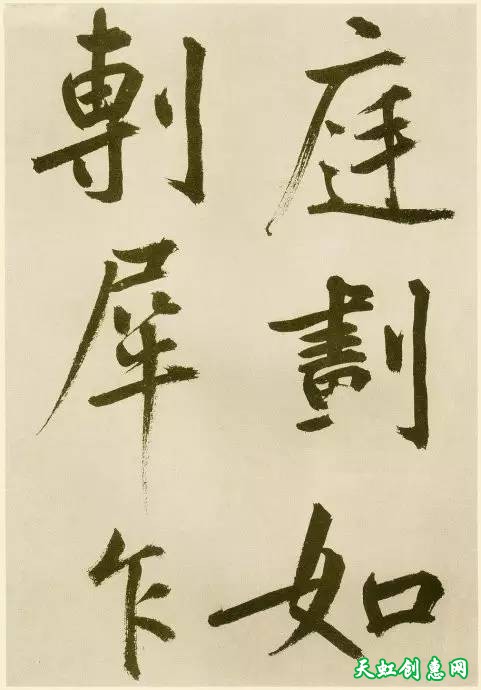 庭劃如
剸犀乍
天虹创惠网